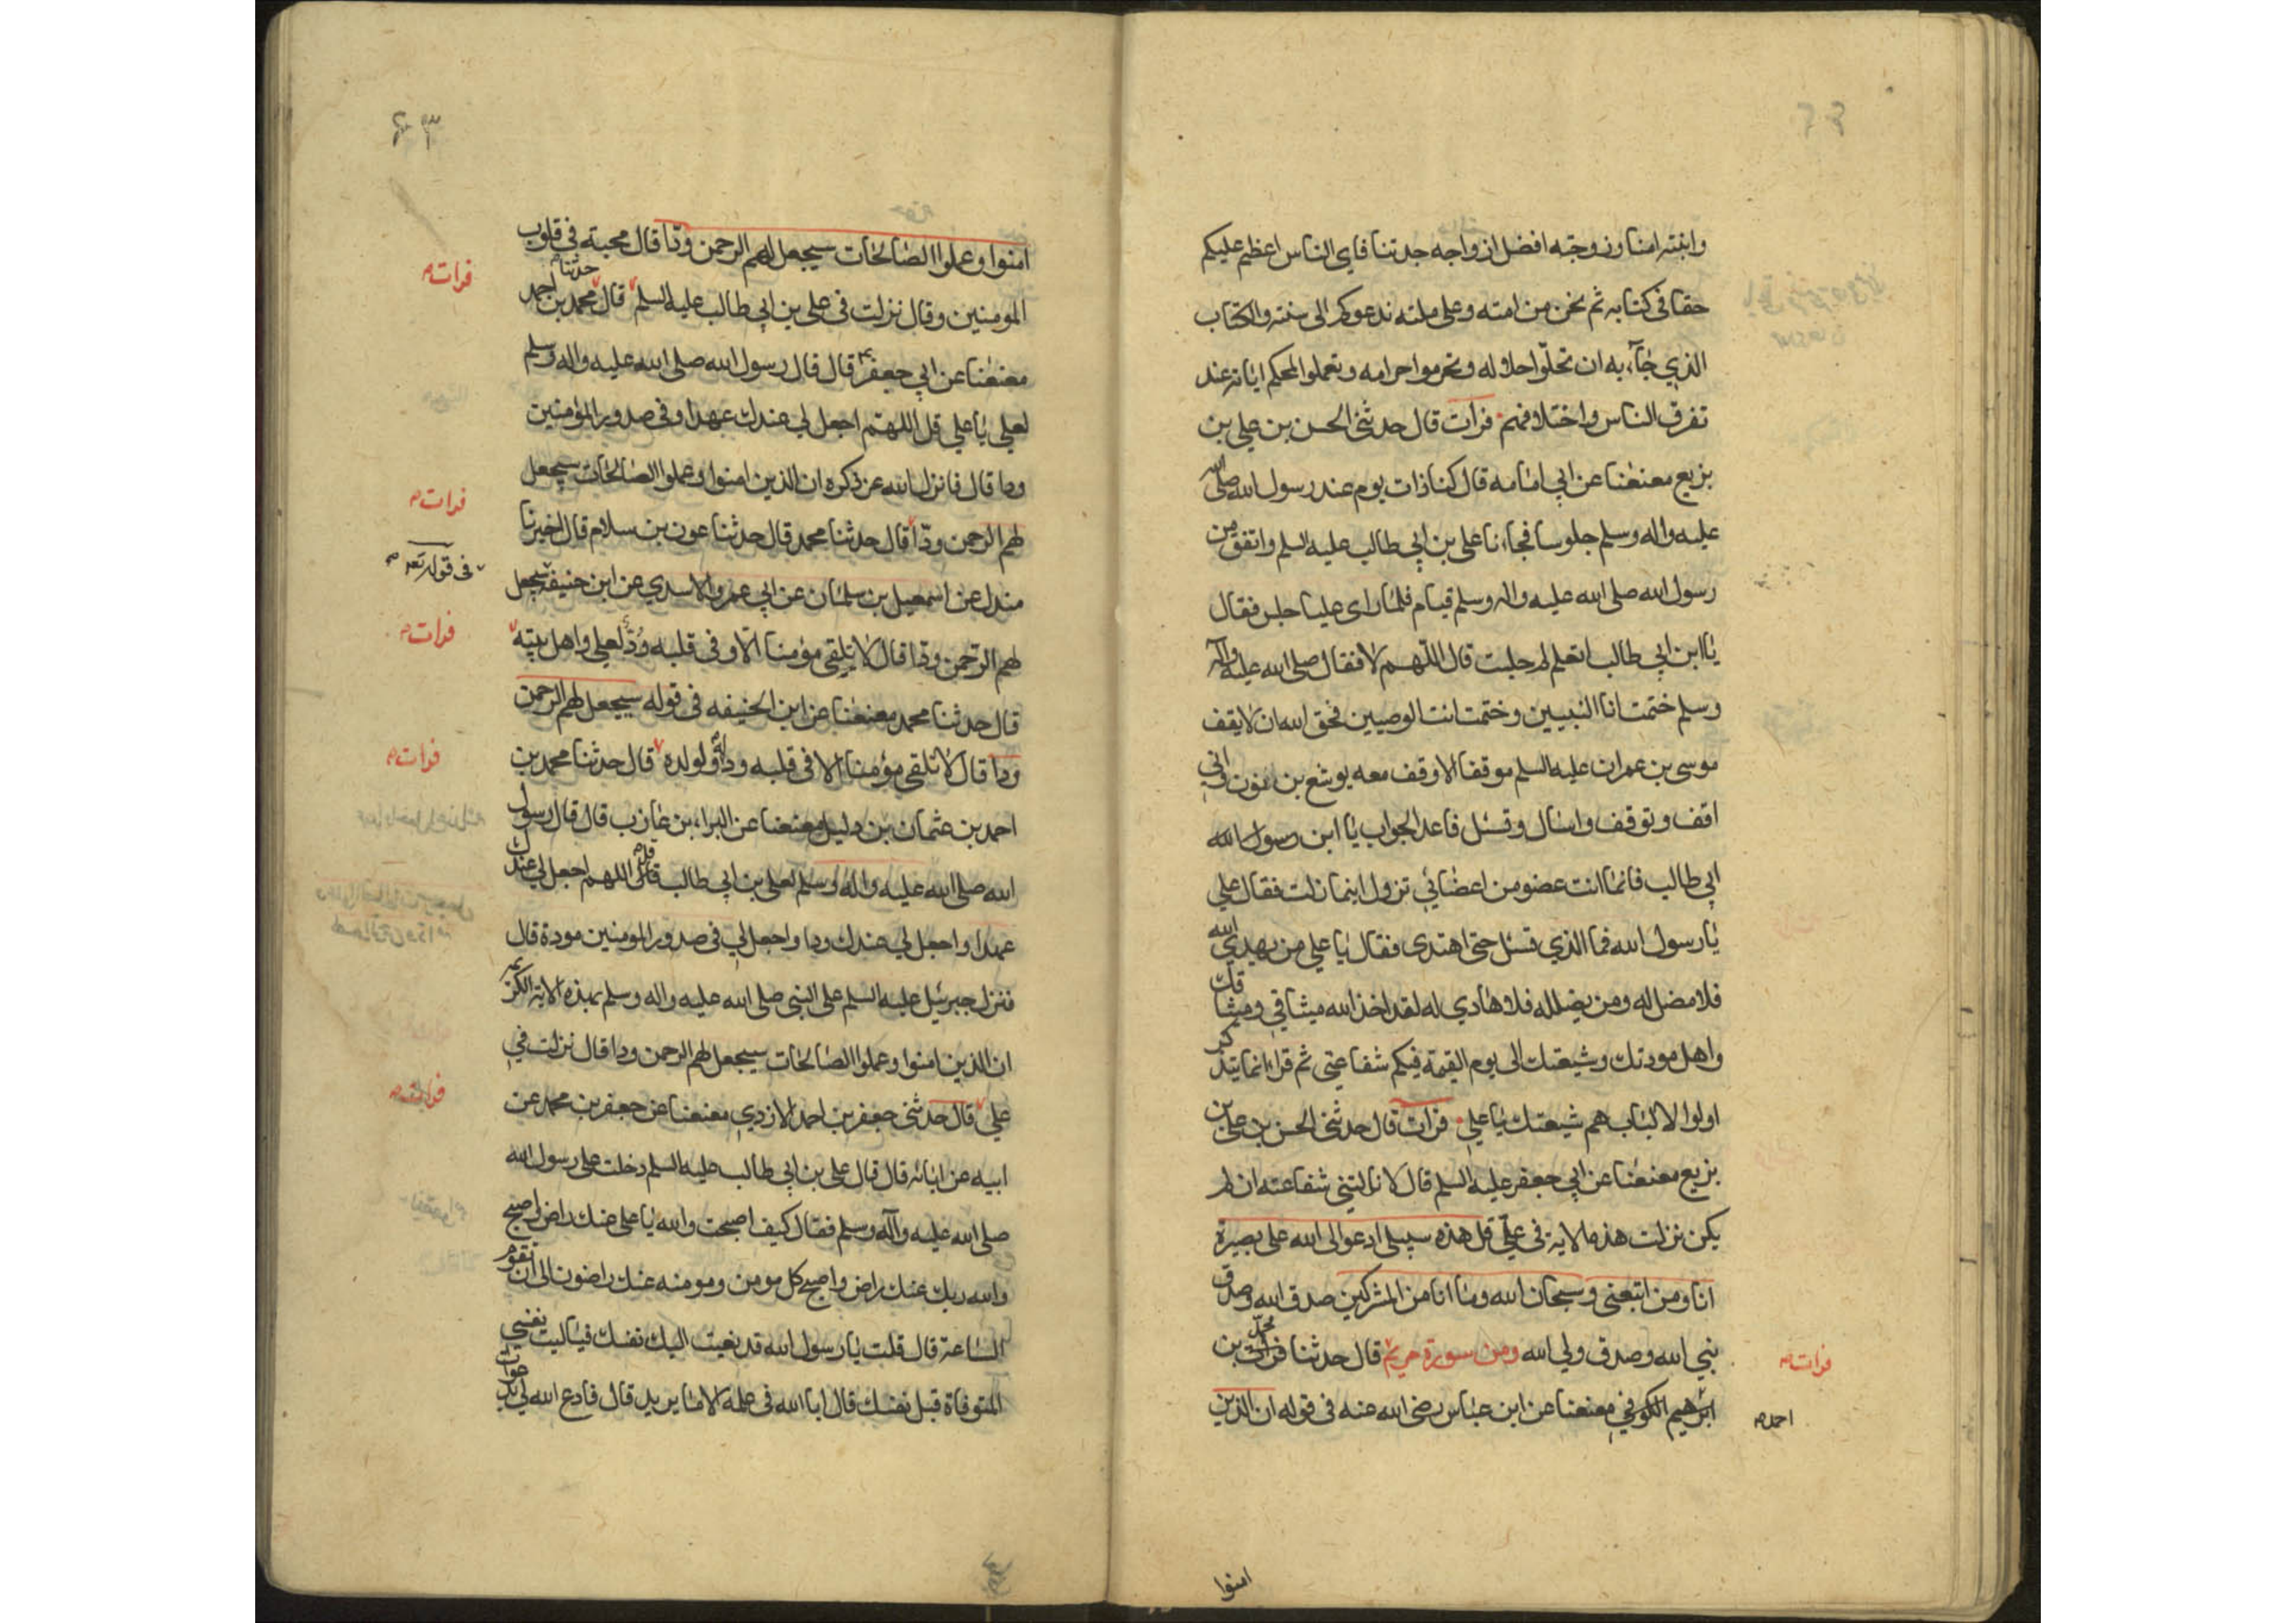 وابنته امنا وزوجته افضل ازواجه جدتنا فاي الناس اعظم عليكم
حقا في كتابه ثم نحن من امته وعلى ملته ندعوكم الى سنته والكتاب
الذي جآء به ان تحلوا حلاله وتحرموا حرامه وتعملوا المحكم اياته عند
تفرق الناس واختلافهم فرات قال حدثني الحسن بن علي بن
بزيع معنعنا عن ابي امامه قال كنا ذات يوم عند رسول الله صلى الله
عليه واله وسلم جلوسا فجاءنا علي بن ابي طالب عليه السلم واتفق من
رسول الله صلى الله عليه واله وسلم قيام فلما راى عليا جلس فقال
يا ابن ابي طالب اتعلم لم جلست قال اللهم لا فقال صلى الله عليه واله
وسلم ختمت انا النبيين وختمت انت الوصيين فحق الله ان لا يقف
موسى بن عمران عليه السلم موقفا الا وقف معه يوشع بن نون اني
اقف وتوقف واسال وتسئل فاعد الجواب يا ابن رسول الله
ابي طالب فانما انت عضو من اعضائي تزول اينما زلت فقال علي
يا رسول الله فما الذي تسئل حتى اهتدى فقال يا علي من يهدي الله
فلا مضل له ومن يضلله فلا هادي له لقد اخذ الله ميثاقي وميثاقك
واهل مودتك وشيعتك الى يوم القيمة فيكم شفاعتي ثم قراء انما يتذكر
اولوا الالباب هم شيعتك يا علي فرات قال حدثني الحسن بن علي بن
بزيع معنعنا عن ابي جعفر عليه السلم قال لا نالتني شفاعته ان لم
يكن نزلت هذه الاية في علي قل هذه سبيلي ادعوا الى الله على بصيرة
انا ومن اتبعني وسبحان الله وما انا من المشركين صدق الله وصدق
نبي الله وصدق ولي الله ومن سورة مريم قال حدثنا فرات بن
محمد
فرات
ابرهيم الكوفي معنعنا عن ابن عباس رضي الله عنه في قوله ان الذين
احمد
امنوا
٦٣
امنوا وعملوا الصالحات سيجعل لهم الرحمن ودا قال محبة في قلوب
فرات
المومنين وقال نزلت في علي بن ابي طالب عليه السلم قال حدثنا محمد بن احمد
معنعنا عن ابي جعفر قال قال رسول الله صلى الله عليه واله وسلم
لعلي يا علي قل اللهم اجعل لي عندك عهدا وفي صدور المؤمنين
ودا قال فانزل الله عز ذكره ان الذين امنوا وعملوا الصالحات سيجعل
فرات
لهم الرحمن ودا قال حدثنا محمد قال حدثنا عون بن سلام قال اخبرنا
في قوله تعه
مندل عن اسمعيل بن سلمان عن ابي عمر والاسدي عن ابن حنيفة سيجعل
لهم الرحمن ودا قال لا يلقى مؤمنا الا وفي قلبه ود لعلي واهل بيته
فرات
قال حدثنا محمد معنعنا عن ابن الحنيفه في قوله سيجعل لهم الرحمن
ودا قال لا تلقي مؤمنا الا في قلبه ود له ولولده قال حدثنا محمد بن
فرات
احمد بن عثمان بن دليل معنعنا عن البراء بن عازب قال قال رسول
الله صلى الله عليه واله وسلم لعلي بن ابي طالب قل اللهم اجعل لي عندك
عهدا واجعل لي عندك ودا واجعل لي في صدور المومنين مودة قال
فنزل جبرئيل عليه السلم على النبي صلى الله عليه واله وسلم بهذه الاية الكريمه
ان الذين امنوا وعملوا الصالحات سيجعل لهم الرحمن ودا قال نزلت في
علي قال حدثني جعفر بن احمد الازدي معنعنا عن جعفر بن محمد عن
فرات
ابيه عن ابائه قال قال علي بن ابي طالب عليه السلم دخلت على رسول الله
صلى الله عليه وآله وسلم فقال كيف اصبحت والله يا علي عنك راض اصبح
والله ربك عنك راض واصبح كل مومن ومومنه عنك راضون الى ان تقوم
الساعة قال قلت يا رسول الله قد نعيت اليك نفسك فياليت نفسي
المتوفاة قبل نفسك قال ابا الله في علمه الا ما يريد قال فادع الله لي بدعوات